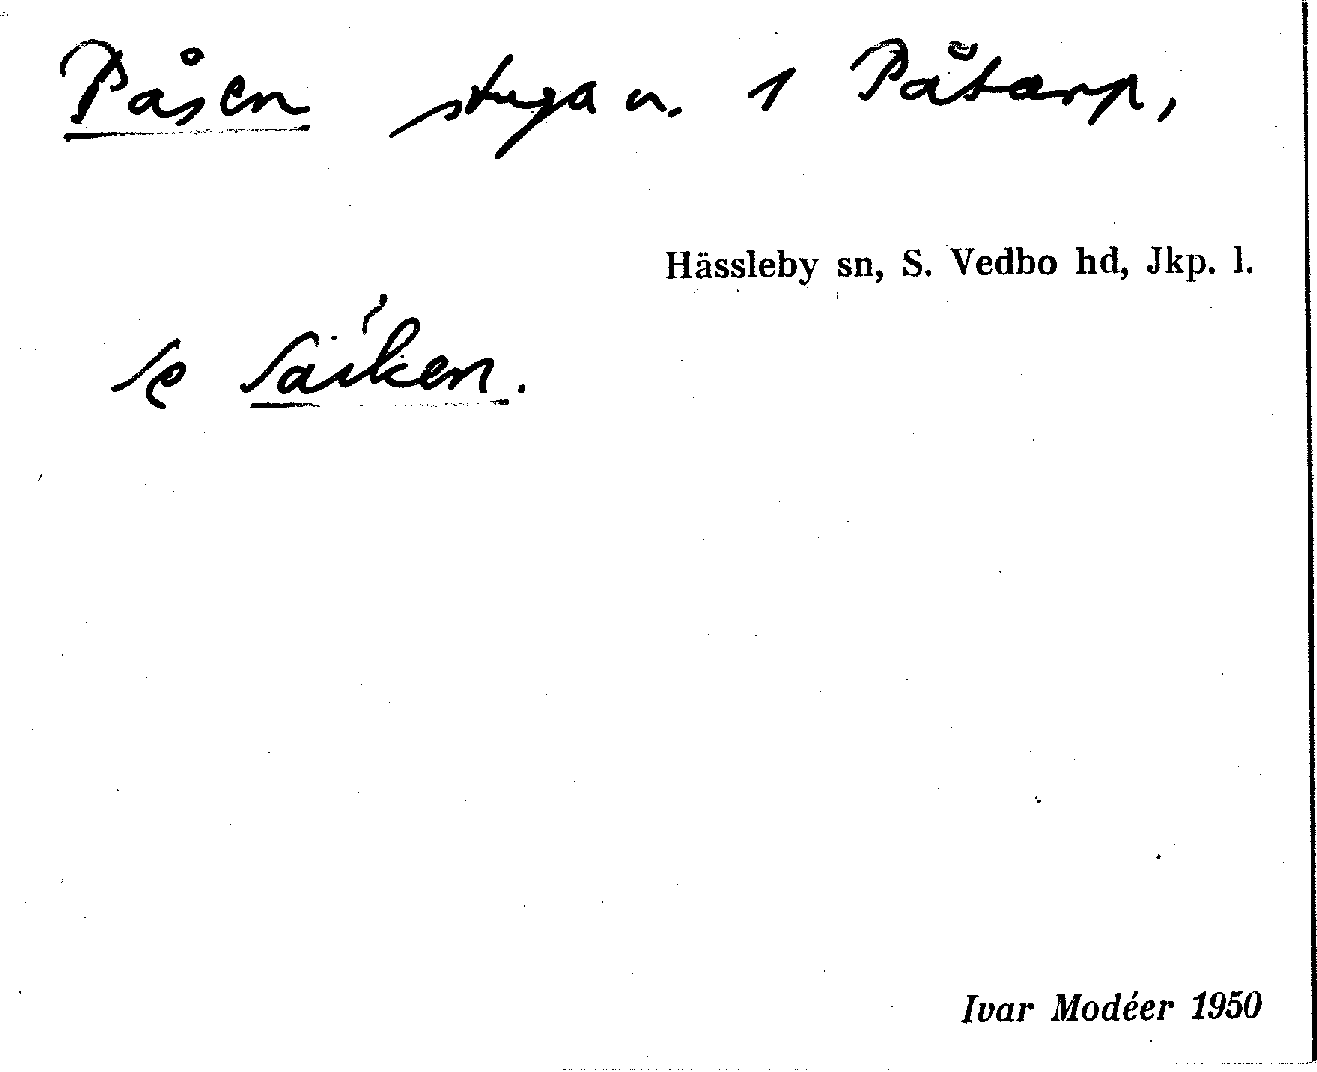 Påsen stuga u. 1 Påtarp,
Hässleby sn, S. Vedbo hd, Jkp. l.
se Säcken.
Ivar Modéer 1950